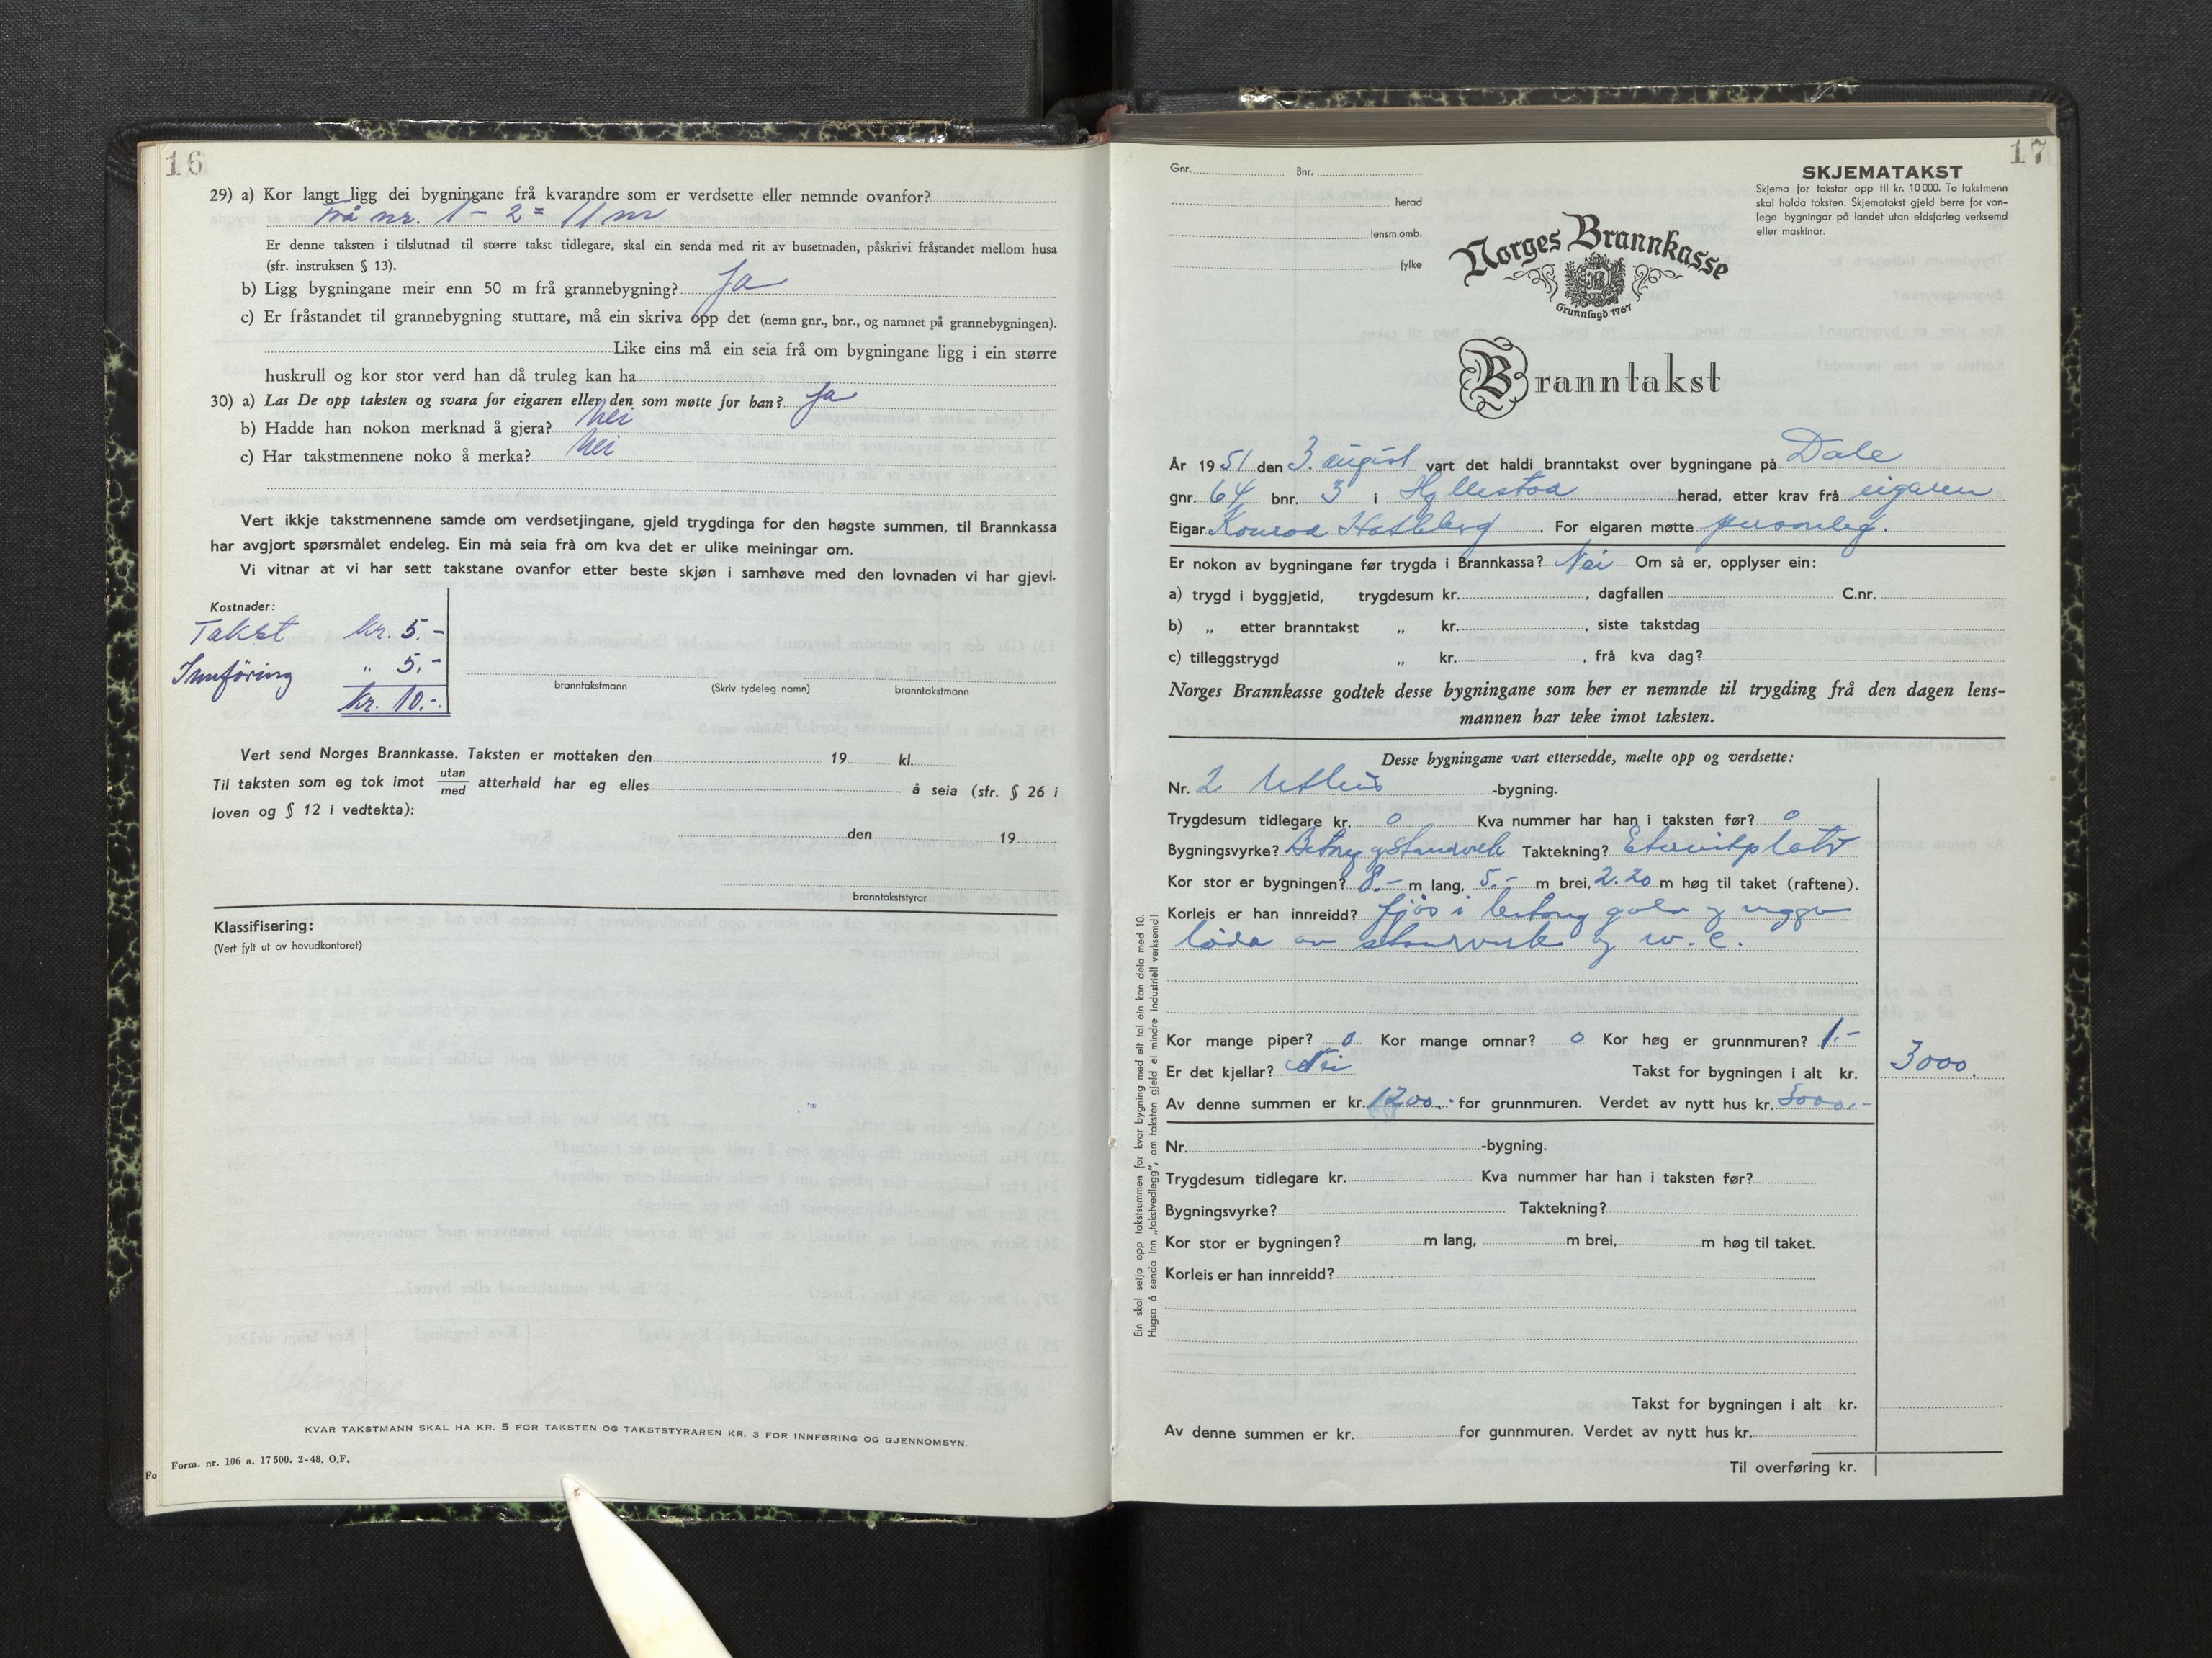 16
29) a) Kor langt ligg dei bygningane frå kvarandre som er verdsette eller nemnde ovanfor?
frå nr. 1 - 2 = 11 m
Er denne taksten i tilslutnad til større takst tidlegare, skal ein senda med rit av busetnaden, påskrivi fråstandet mellom husa
(sfr. instruksen § 13).
b) Ligg bygningane meir enn 50 m frå grannebygning? Ja
c) Er fråstandet til grannebygning stuttare, må ein skriva opp det (nemn gnr., bnr., og namnet på grannebygningen).
Like eins må ein seia frå om bygningane ligg i ein større
huskrull og kor stor verd han då truleg kan ha
30) a) Las De opp taksten og svara for eigaren eller den som møtte for han? Ja
b) Hadde han nokon merknad å gjera? Nei
c) Har takstmennene noko å merka? Nei
Vert ikkje takstmennene samde om verdsetjingane, gjeld trygdinga for den høgste summen, til Brannkassa
har avgjort spørsmålet endeleg. Ein må seia frå om kva det er ulike meiningar om.
Vi vitnar at vi har sett takstane ovanfor etter beste skjøn i samhøve med den lovnaden vi har gjevi.
Kostnader:
Takst kr. 5.-
Innföring " 5.-
kr. 10.-
branntakstmann (Skriv tydeleg namn) branntakstmann
Vert send Norges Brannkasse. Taksten er motteken den 19 kl.
Til taksten som eg tok imot utan/med atterhald har eg elles å seia (sfr. § 26 i
loven og § 12 i vedtekta):
den 19
branntakststyrar
Klassifisering:
(Vert fylt ut av hovudkontoret)
KVAR TAKSTMANN SKAL HA KR. 5 FOR TAKSTEN OG TAKSTSTYRAREN KR. 3 FOR INNFØRING OG GJENNOMSYN.
Fo
Form. nr. 106 a. 17500. 2-48. O.F.
17
Gnr. Bnr.
herad
lensm.omb.
fylke
SKJEMATAKST
Skjema for takstar opp til kr. 10 000. To takstmenn
skal halda taksten. Skjematakst gjeld berre for van-
lege bygningar på landet utan eldsfarleg verksemd
eller maskinar.
Norges Brannkasse
Grunnlagd 1767
Branntakst
År 1951 den 3. august vart det haldi branntakst over bygningane på Dale
gnr. 64 bnr. 3 i Hyllestad herad, etter krav frå eigaren
Eigar Konrad Hatleberg. For eigaren møtte personleg.
Er nokon av bygningane før trygda i Brannkassa? Nei Om så er, opplyser ein:
a) trygd i byggjetid, trygdesum kr. , dagfallen C.nr.
b) „ etter branntakst „ kr. , siste takstdag
c) tilleggstrygd „ kr. , frå kva dag?
Norges Brannkasse godtek desse bygningane som her er nemnde til trygding frå den dagen lens-
mannen har teke imot taksten.
Desse bygningane vart ettersedde, mælte opp og verdsette:
Nr. 2 Uthus -bygning.
Trygdesum tidlegare kr. 0 Kva nummer har han i taksten før? 0
Bygningsvyrke? Betong og standverk Taktekning? Eternitplater
Kor stor er bygningen? 8.- m lang, 5.- m brei, 2.20 m høg til taket (raftene).
Korleis er han innreidd? fjøs i betong golv og vegger
løda av standverk og w.c.
Kor mange piper? 0 Kor mange omnar? 0 Kor høg er grunnmuren? 1.-
Er det kjellar? Nei Takst for bygningen i alt kr. 3000.
Av denne summen er kr. 1200.- for grunnmuren. Verdet av nytt hus kr. 3000.-
Nr. -bygning.
Trygdesum tidlegare kr. Kva nummer har han i taksten før?
Bygningsvyrke? Taktekning?
Kor stor er bygningen? m lang, m brei, m høg til taket.
Korleis er han innreidd?
Takst for bygningen i alt kr.
Av denne summen er kr. for gunnmuren. Verdet av nytt hus kr.
Til overføring kr.
Ein skal setja opp takstsummen for kvar bygning med eit tal ein kan dela med 10.
Hugsa å senda inn „takstvedlegg", om taksten gjeld ei mindre industriell verksemd!